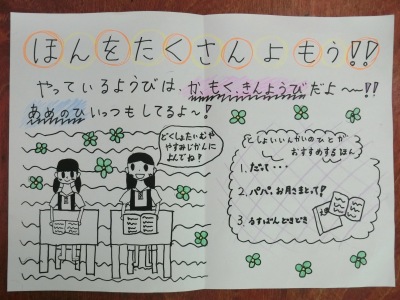 ほんをたくさんよもう!!
やっているようびは、か、もく、きんようびだよ〜!!
あめのひいっつもしてるよ〜!
どくしょたいむや
やすみじかんに
よんでね!
としょいいんかいのひとが
おすすめするほん
1. だって・・・
2. パパ、お月さまとって!
3. るすばんどきどき